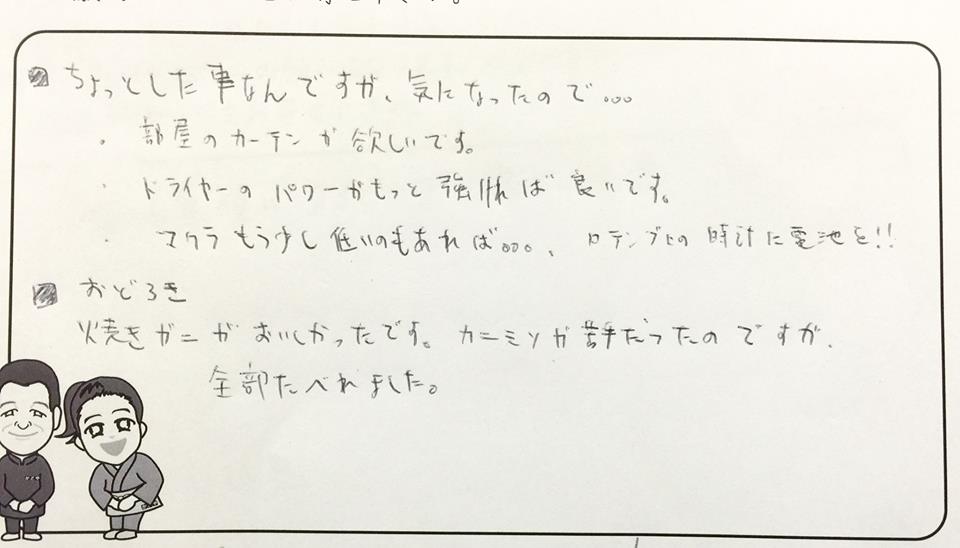 ちょっとした事なんですが、気になったので...
・ 部屋のカーテンが欲しいです。
・ ドライヤーのパワーがもっと強ければ良いです。
・ マクラもう少し低いのもあれば...、ロテンブロの時計に電池を!!
おどろき
焼きガニがおいしかったです。カニミソが苦手だったのですが、
全部たべれました。